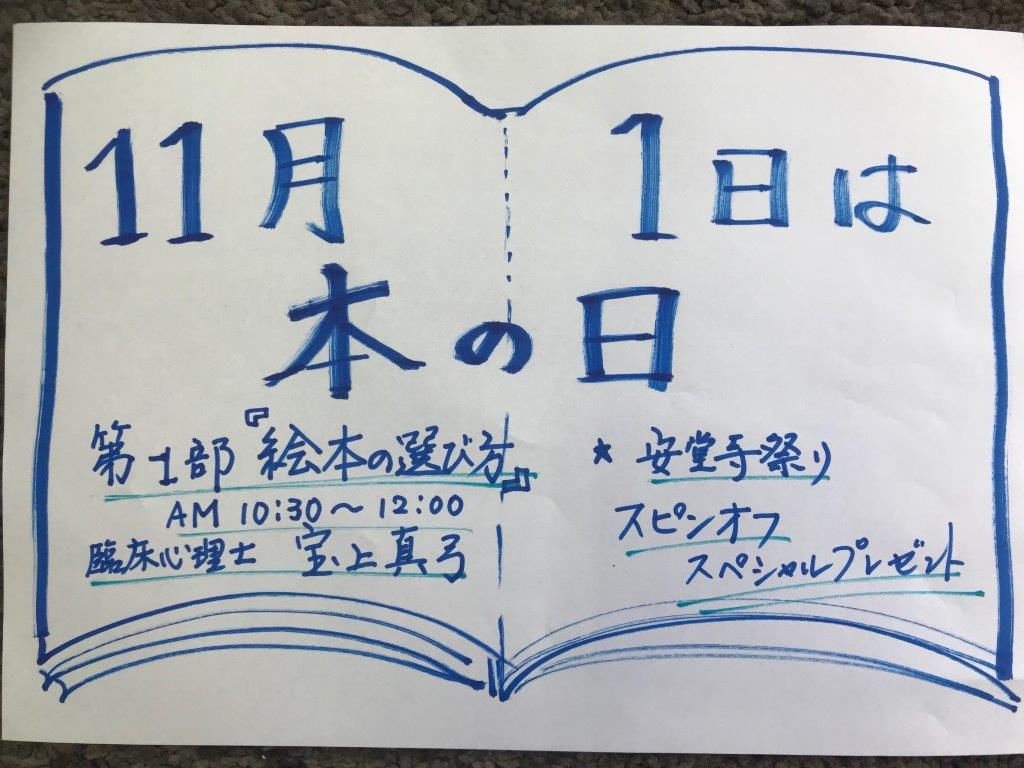 11月 1日は
本の日
第1部『絵本の選び方』
AM 10:30〜12:00
臨床心理士 宝上真弓
★ 安堂寺祭り
スピンオフ
スペシャルプレゼント